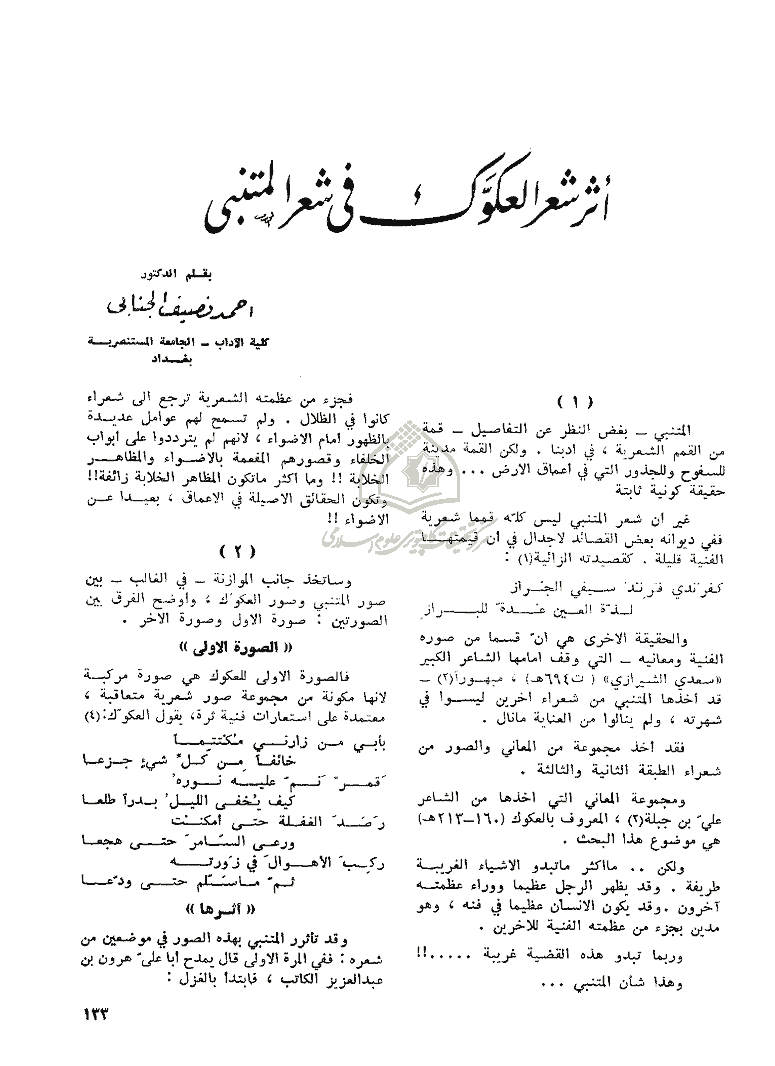 أثر شعر العكوَّك في شعر المتنبي
بقلم الدكتور
احمد نصيف الجنابي
كلية الآداب – الجامعة المستنصرية
بغداد
( ١ )
المتنبي – بغض النظر عن التفاصيل – قمة
من القمم الشعرية ، في ادبنا . ولكن القمة مدينة
للسفوح وللجذور التي في اعماق الارض ... وهذه
حقيقة كونية ثابتة
غير ان شعر المتنبي ليس كلّه قمما شعرية
ففي ديوانه بعض القصائد لاجدال في ان قيمتهـا
الفنية قليلة . كقصيدته الزائية(١) :
كفرندي فرند سيفي الجراز
لذة العين عدة للبراز
والحقيقة الاخرى هي انّ قسما من صوره
الفنية ومعانيه – التي وقف امامها الشاعر الكبير
«سعدي الشيرازي» ( ت٦٩٤هـ) ، مبهورا(٢) –
قد أخذها المتنبي من شعراء آخرين ليسوا في
شهرته ، ولم ينالوا من العناية مانال .
فقد اخذ مجموعة من المعاني والصور من
شعراء الطبقة الثانية والثالثة .
ومجموعة المعاني التي اخذها من الشاعر
عليّ بن جبلة(٣) ، المعروف بالعكوك (١٦٠–٢١٣هـ)
هي موضوع هذا البحث .
ولكن .. مااكثر ماتبدو الاشياء الغريبة
طريفة . وقد يظهر الرجل عظيما ووراء عظمته
آخرون .وقد يكون الانسان عظيما في فنه ، وهو
مدين بجزء من عظمته الفنية للآخرين .
وربما تبدو هذه القضية غريبة .....!!
وهذا شأن المتنبي ...
فجزء من عظمته الشعرية ترجع الى شعراء
كانوا في الظلال . ولم تسمح لهم عوامل عديدة
بالظهور امام الاضواء ، لانهم لم يترددوا على ابواب
الخلفاء وقصورهم المفعمة بالاضواء والمظاهر
الخلابة !! وما اكثر ماتكون المظاهر الخلابة زائفة!!
وتكون الحقائق الاصيلة في الاعماق ، بعيدا عن
الاضواء !!
( ٢ )
وساتخذ جانب الموازنة – في الغالب – بين
صور المتنبي وصور العكوّك ، واوضح الفرق بين
الصورتين : صورة الاول وصورة الآخر .
« الصورة الاولى »
فالصورة الاولى للعكوك هي صورة مركبة
لانها مكونة من مجموعة صور شعرية متعاقبة ،
معتمدة على استعارات فنية ثرة، يقول العكوّك:(٤)
بأبي من زارني مكتتما
خائفاً من كلّ شيءٍ جزعا
قمرٌ نمّ عليه نوره
كيف يُخفي الليلُ بدراً طلعا
رصد الغفلة حتى أمكنت
ورعى السامر حتى هجعا
ركب الأهوال في زورته
ثمّ ماسلّم حتى ودّعا
« أثـرها »
و قد تأثرر المتنبي بهذه الصور في موضعين من
شعره : ففي المرة الاولى قال يمدح أبا عليّ هرون بن
عبدالعزيز الكاتب ، فابتدأ بالغزل :
١٣٣
مركز تحقيقات كامپيوترى علوم اسلامى